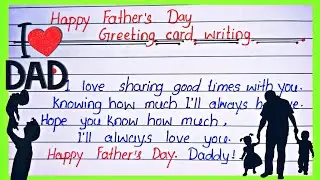 Happy Father's Day
Greeting card writing
I
DAD
I love sharing good times with you.
Knowing how much I'll always
Hope you know how much,
I'll always love you.
Happy Father's Day. Daddy!